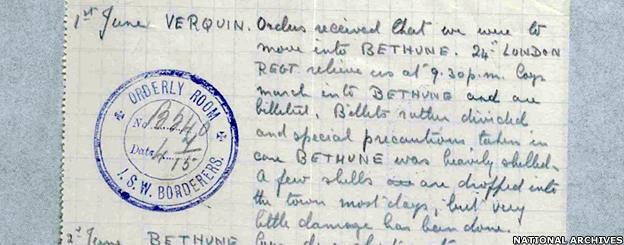 1st June VERQUIN. Orders received that we were to
move into BETHUNE. 24th LONDON
REGT relieve us at 9.30 p.m. Coys
march into BETHUNE and are
billeted. Billets rather divided
and special precautions taken in
case BETHUNE was heavily shelled.
A few shells are dropped into
the town most days, but very
little damage has been done.
ORDERLY ROOM
No. B240
Date 4
15
1. S.W. BORDERERS.
2nd June BETHUNE
NATIONAL ARCHIVES